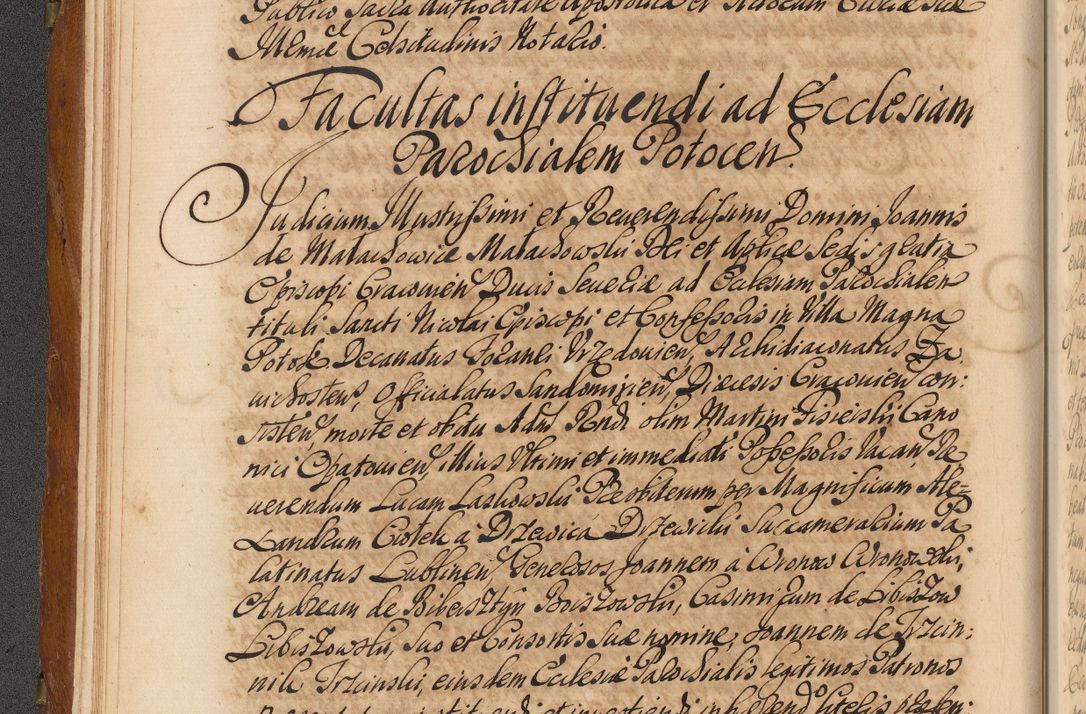 Publico Sacra Authoritate Apostolica et Actorum Curiæ Suæ
Illmæ Celsitudinis Notario.
Facultas instituendi ad Ecclesiam
Parochialem Potocen.
Judicium Illustrissimi et Reverendissimi Domini Joannis
de Małachowice Małachowski Dei et Aplicæ Sedis gratia
Episcopi Cracovien Ducis Severiæ ad Ecclesiam Parochialem
tituli Sancti Nicolai Episcopi et Confessoris in Villa Magna
Potok Decanatus Foranei Urzedovien, Archidiaconatus Za
vichosten, Officialatus Sandomirien, Diæcesis Cracovien con:
sisten, morte et obitu Adm Rndi olim Martini Fisieiski Cano
nici Opatovien, illius Ultimi et immediati Possessoris Vacan, Re
verendum Lucam Laskowski Præsbiterum per Magnificum Ale=
xandrum Ciołek a Drzewica Drzewicki Succamerarium Pa
latinatus Lublinen, Generosos Joannem a Wronow Wronowski,
Andream de Biberszteyn Boiszowski, Casimirum de Libiszow
Libiszowski, suo et Consortis suæ nomine, Joannem de Trzcin:
nik Trzcinski, eiusdem Ecclesiæ Parochialis legitimos Patronos
instituendi et investiendi in hæsendo literis præsen: